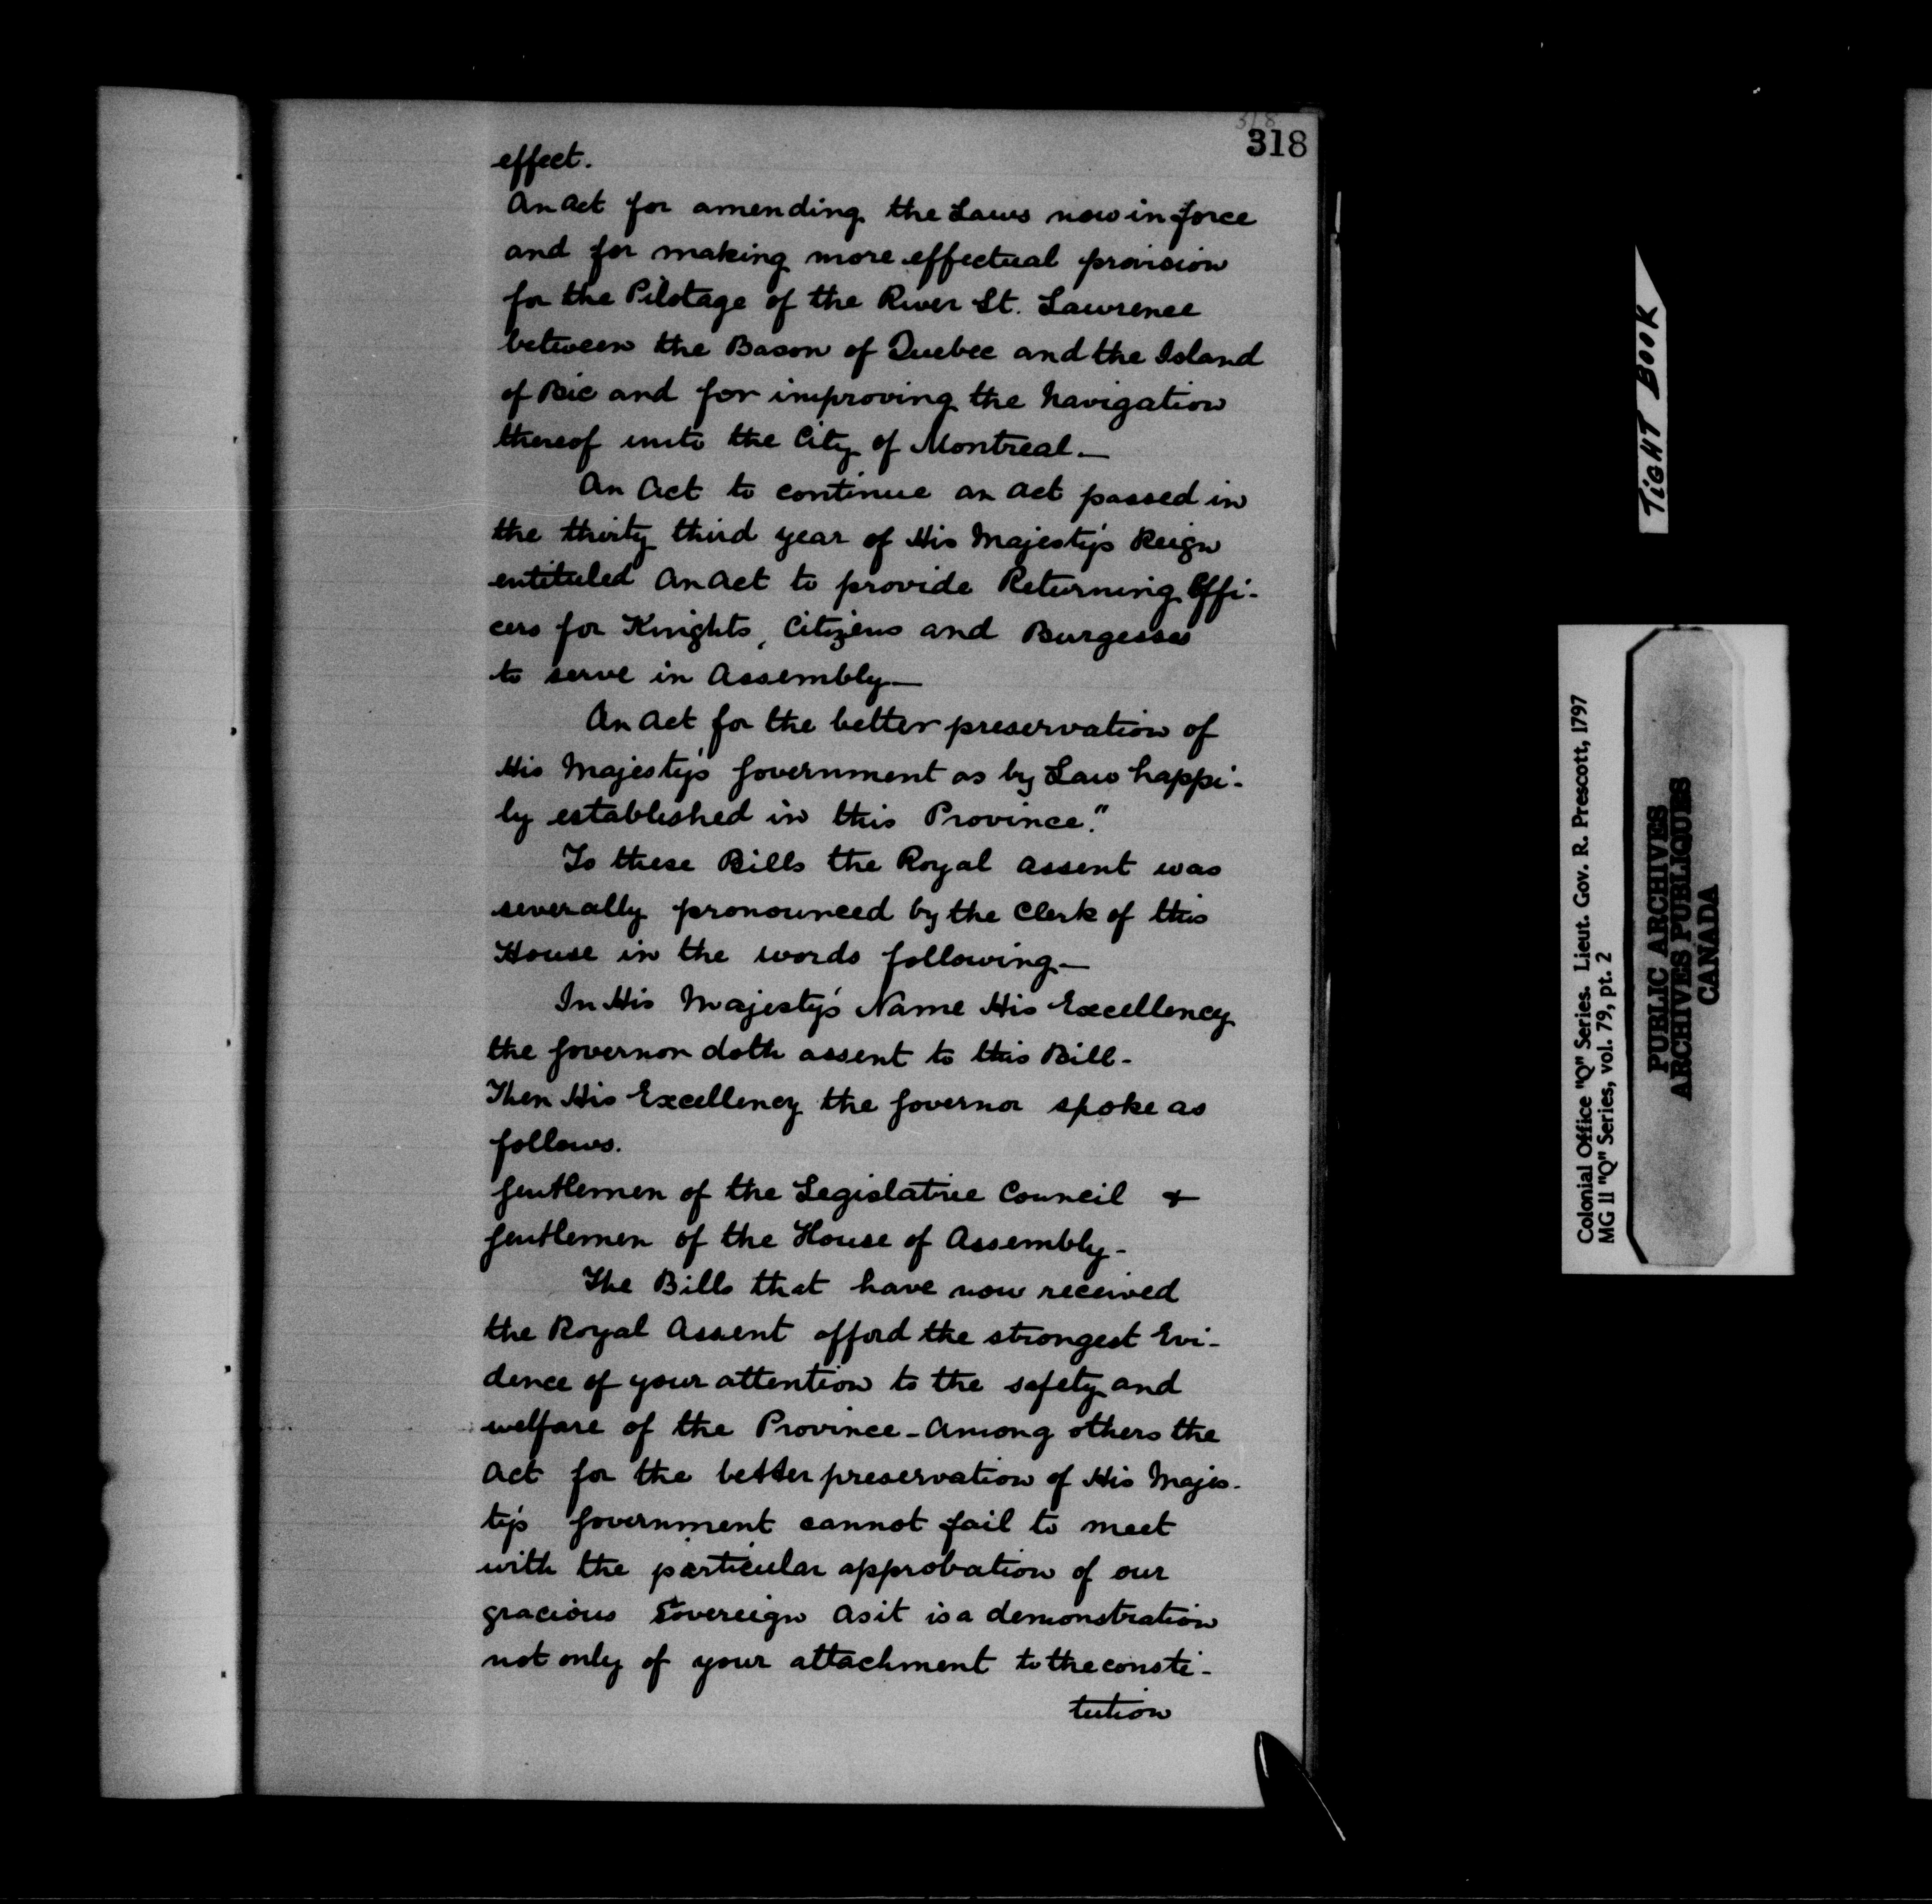 318
318
effect.
An Act for amending the Laws now in force
and for making more effectual provision
for the Pilotage of the River St. Lawrence
between the Bason of Quebec and the Island
of Bic and for improving the Navigation
thereof unto the City of Montreal.—
An Act to continue an act passed in
the thirty third year of His Majesty's Reign
entituled An Act to provide Returning Offi-
cers for Knights, Citizens and Burgesses
to serve in Assembly—
An Act for the better preservation of
His Majesty's Government as by Law happi-
ly established in this Province."
To these Bills the Royal assent was
severally pronounced by the Clerk of this
House in the words following.—
In His Majesty's Name His Excellency
the Governor doth assent to this Bill-
Then His Excellency the Governor spoke as
follows.
Gentlemen of the Legislative Council &
Gentlemen of the House of Assembly-
The Bills that have now received
the Royal Assent afford the strongest Evi-
dence of your attention to the safety and
welfare of the Province-Among others the
Act for the better preservation of His Majes-
ty's Government cannot fail to meet
with the particular approbation of our
gracious Sovereign as it is a demonstration
not only of your attachment to the consti-
tution
TIGHT BOOK
Colonial Office "Q" Series. Lieut. Gov. R. Prescott, 1797
MG 11 "Q" Series, vol. 79, pt. 2
PUBLIC ARCHIVES
ARCHIVES PUBLIQUES
CANADA